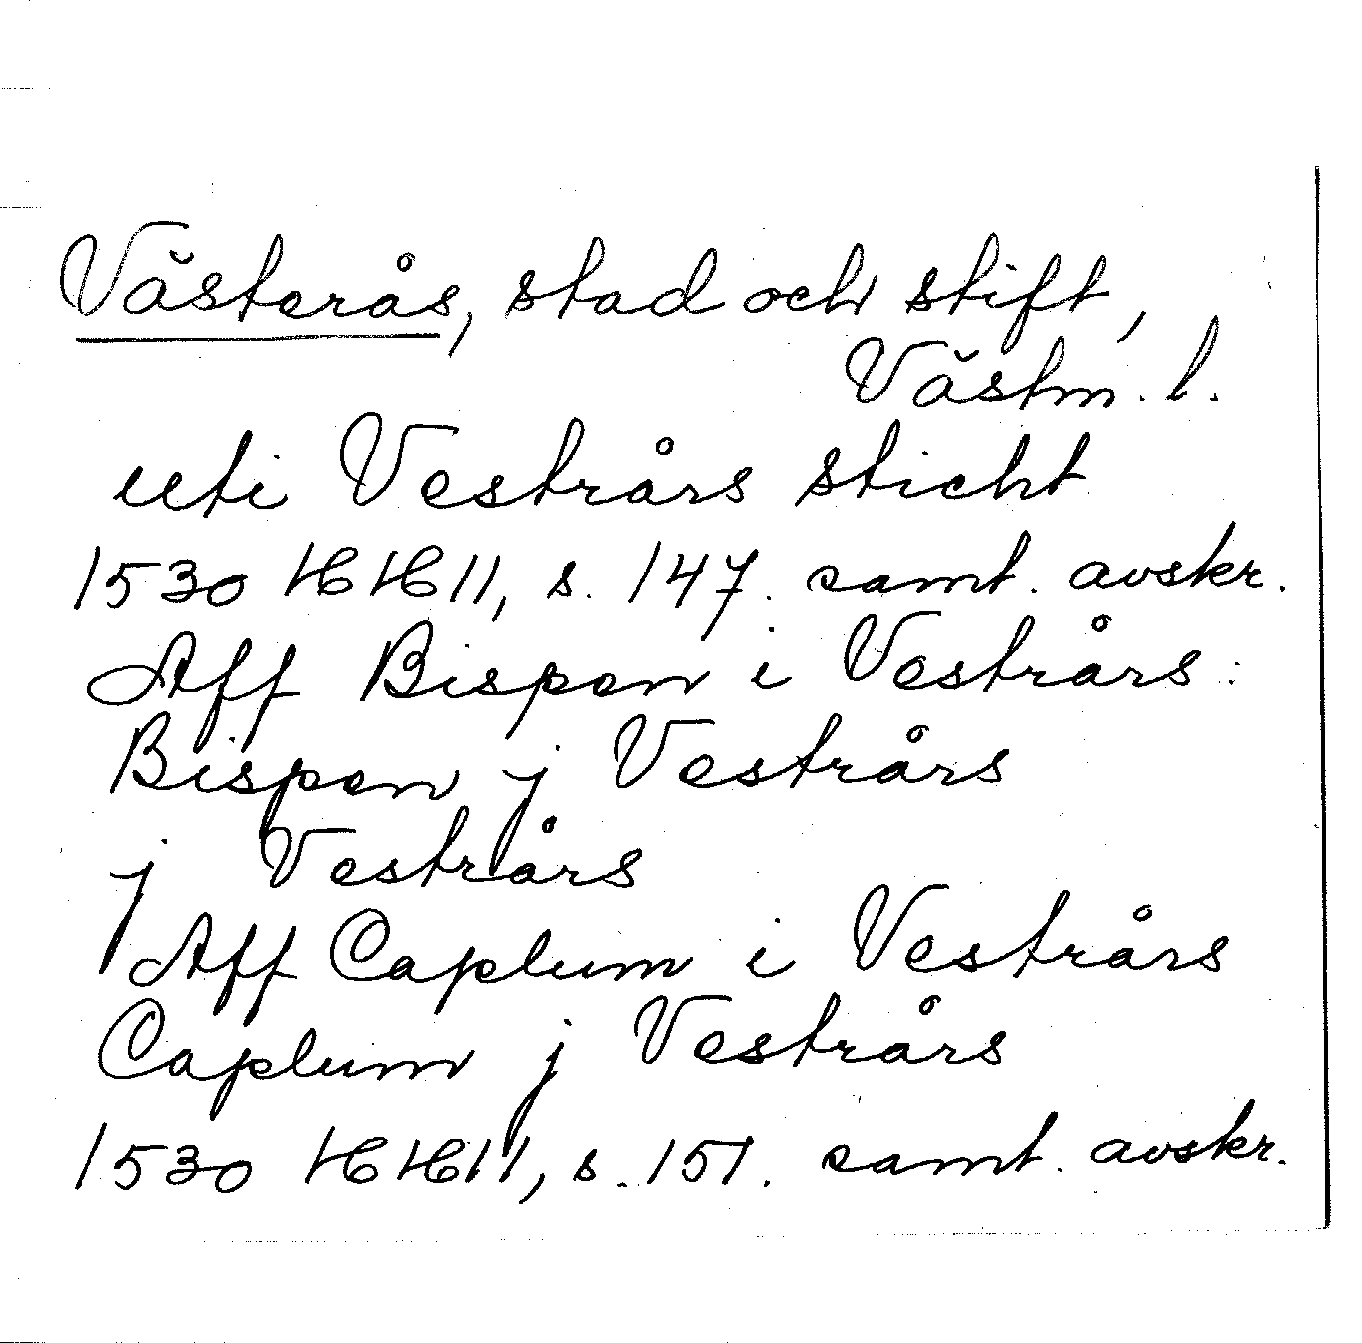 Västerås, stad och stift,
Västm. l.
uti Vestrårs sticht
1530 HH 11, s. 147. samt. avskr.
Aff Bispen i Vestrårs
Bispen j Vestrårs
j Vestrårs
Aff Caplum i Vestrårs
Caplum j Vestrårs
1530 HH 11, s. 151. samt. avskr.